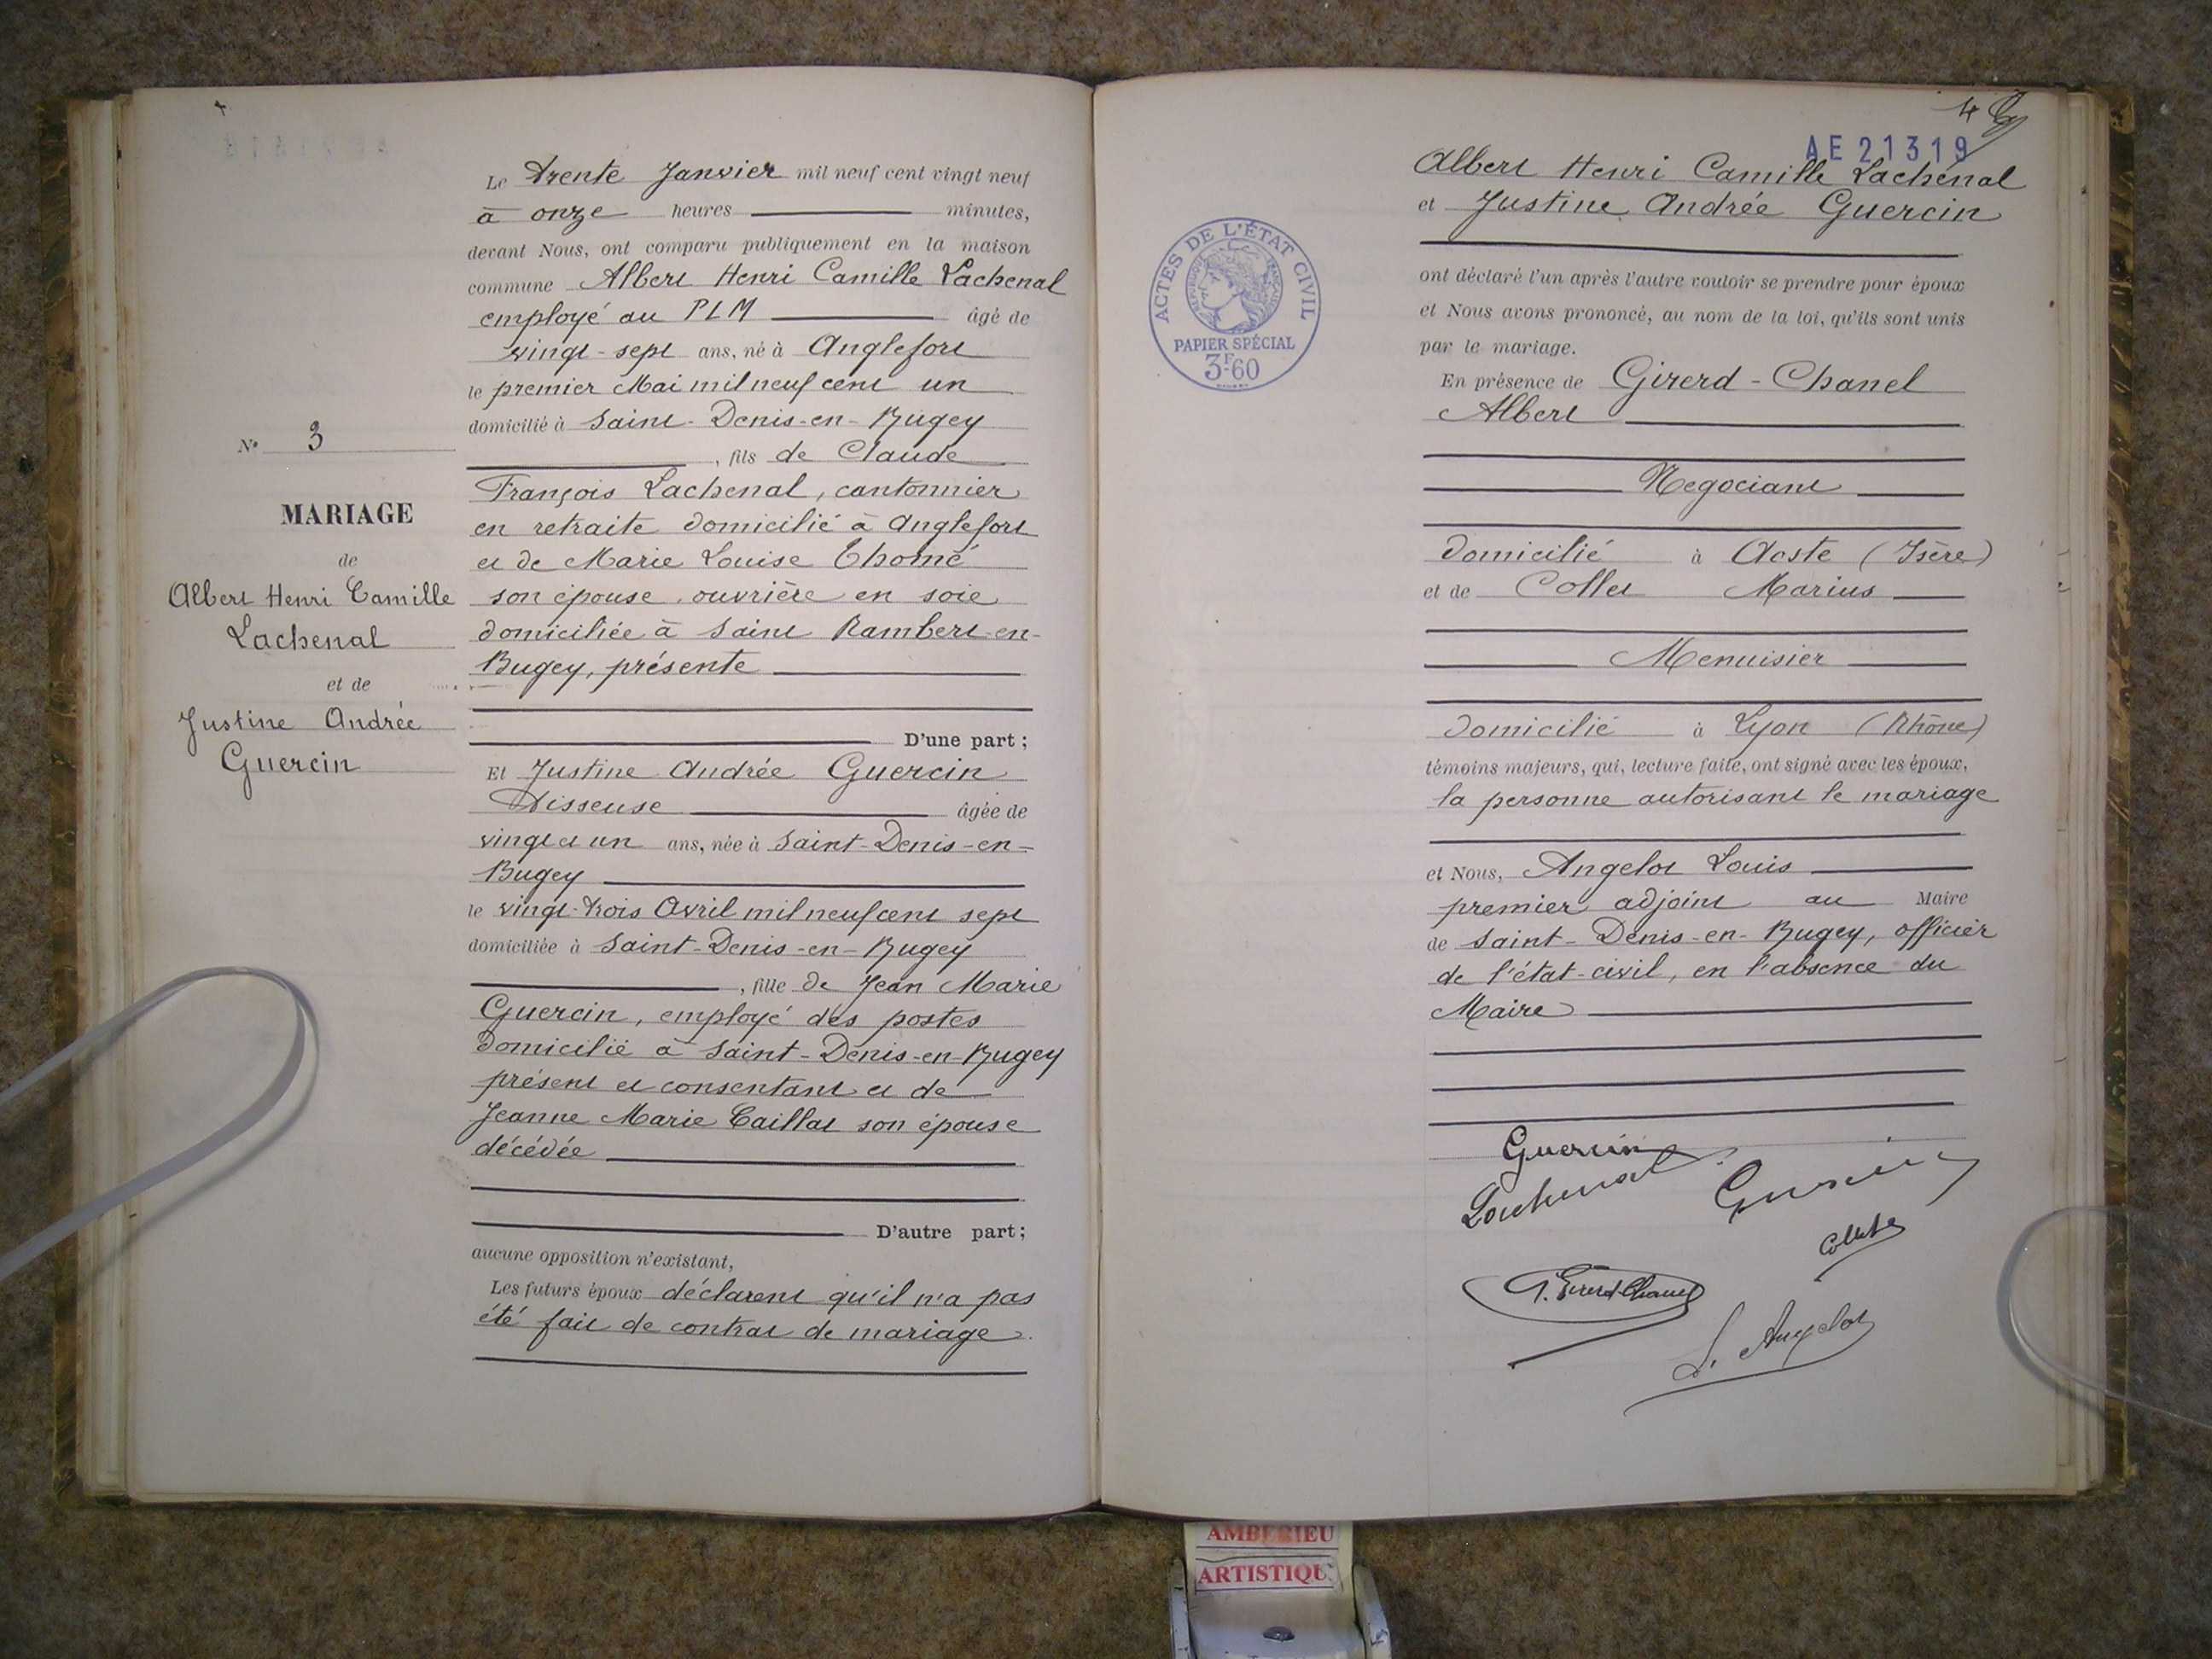 Le trente Janvier mil neuf cent vingt neuf
à onze heures minutes,
devant Nous, ont comparu publiquement en la maison
commune Albert Henri Camille Lachenal
employé au PLM âgé de
vingt-sept ans, né à Anglefort
le premier Mai mil neuf cent un
domicilié à Saint-Denis-en-Bugey
, fils de Claude
François Lachenal, cantonnier
en retraite domicilié à Anglefort
et de Marie Louise Thomé
son épouse ouvrière en soie
domiciliée à Saint Rambert-en-
Bugey, présente
D'une part;
Et Justine Andrée Guercin
Tisseuse âgée de
vingt et un ans, née à Saint-Denis-en-
Bugey
le vingt-trois Avril mil neuf cent sept
domiciliée à Saint-Denis-en-Bugey
, fille de Jean Marie
Guercin, employé des postes
domicilié à Saint-Denis-en-Bugey
présent et consentant et de
Jeanne Marie Caillat son épouse
décédée
D'autre part;
aucune opposition n'existant,
Les futurs époux déclarent qu'il n'a pas
été fait de contrat de mariage
N° 3
MARIAGE
de
Albert Henri Camille
Lachenal
et de
Justine Andrée
Guercin
4
AE 21319
ACTES DE L'ÉTAT CIVIL
RÉPUBLIQUE FRANÇAISE
PAPIER SPÉCIAL
3F60
Albert Henri Camille Lachenal
et Justine Andrée Guercin
ont déclaré l'un après l'autre vouloir se prendre pour époux
et Nous avons prononcé, au nom de la loi, qu'ils sont unis
par le mariage.
En présence de Girerd-Chanel
Albert
Negociant
domicilié à Aoste (Isère)
et de Collet Marius
Menuisier
domicilié à Lyon (Rhône)
témoins majeurs, qui, lecture faite, ont signé avec les époux,
la personne autorisant le mariage
et Nous, Angelot Louis
premier adjoint au Maire
de Saint-Denis-en-Bugey, officier
de l'état-civil, en l'absence du
Maire
Guercin
Lachenal
Guercin
Collet
Girerd-Chanel
L. Angelot
AMBERIEU
ARTISTIQU